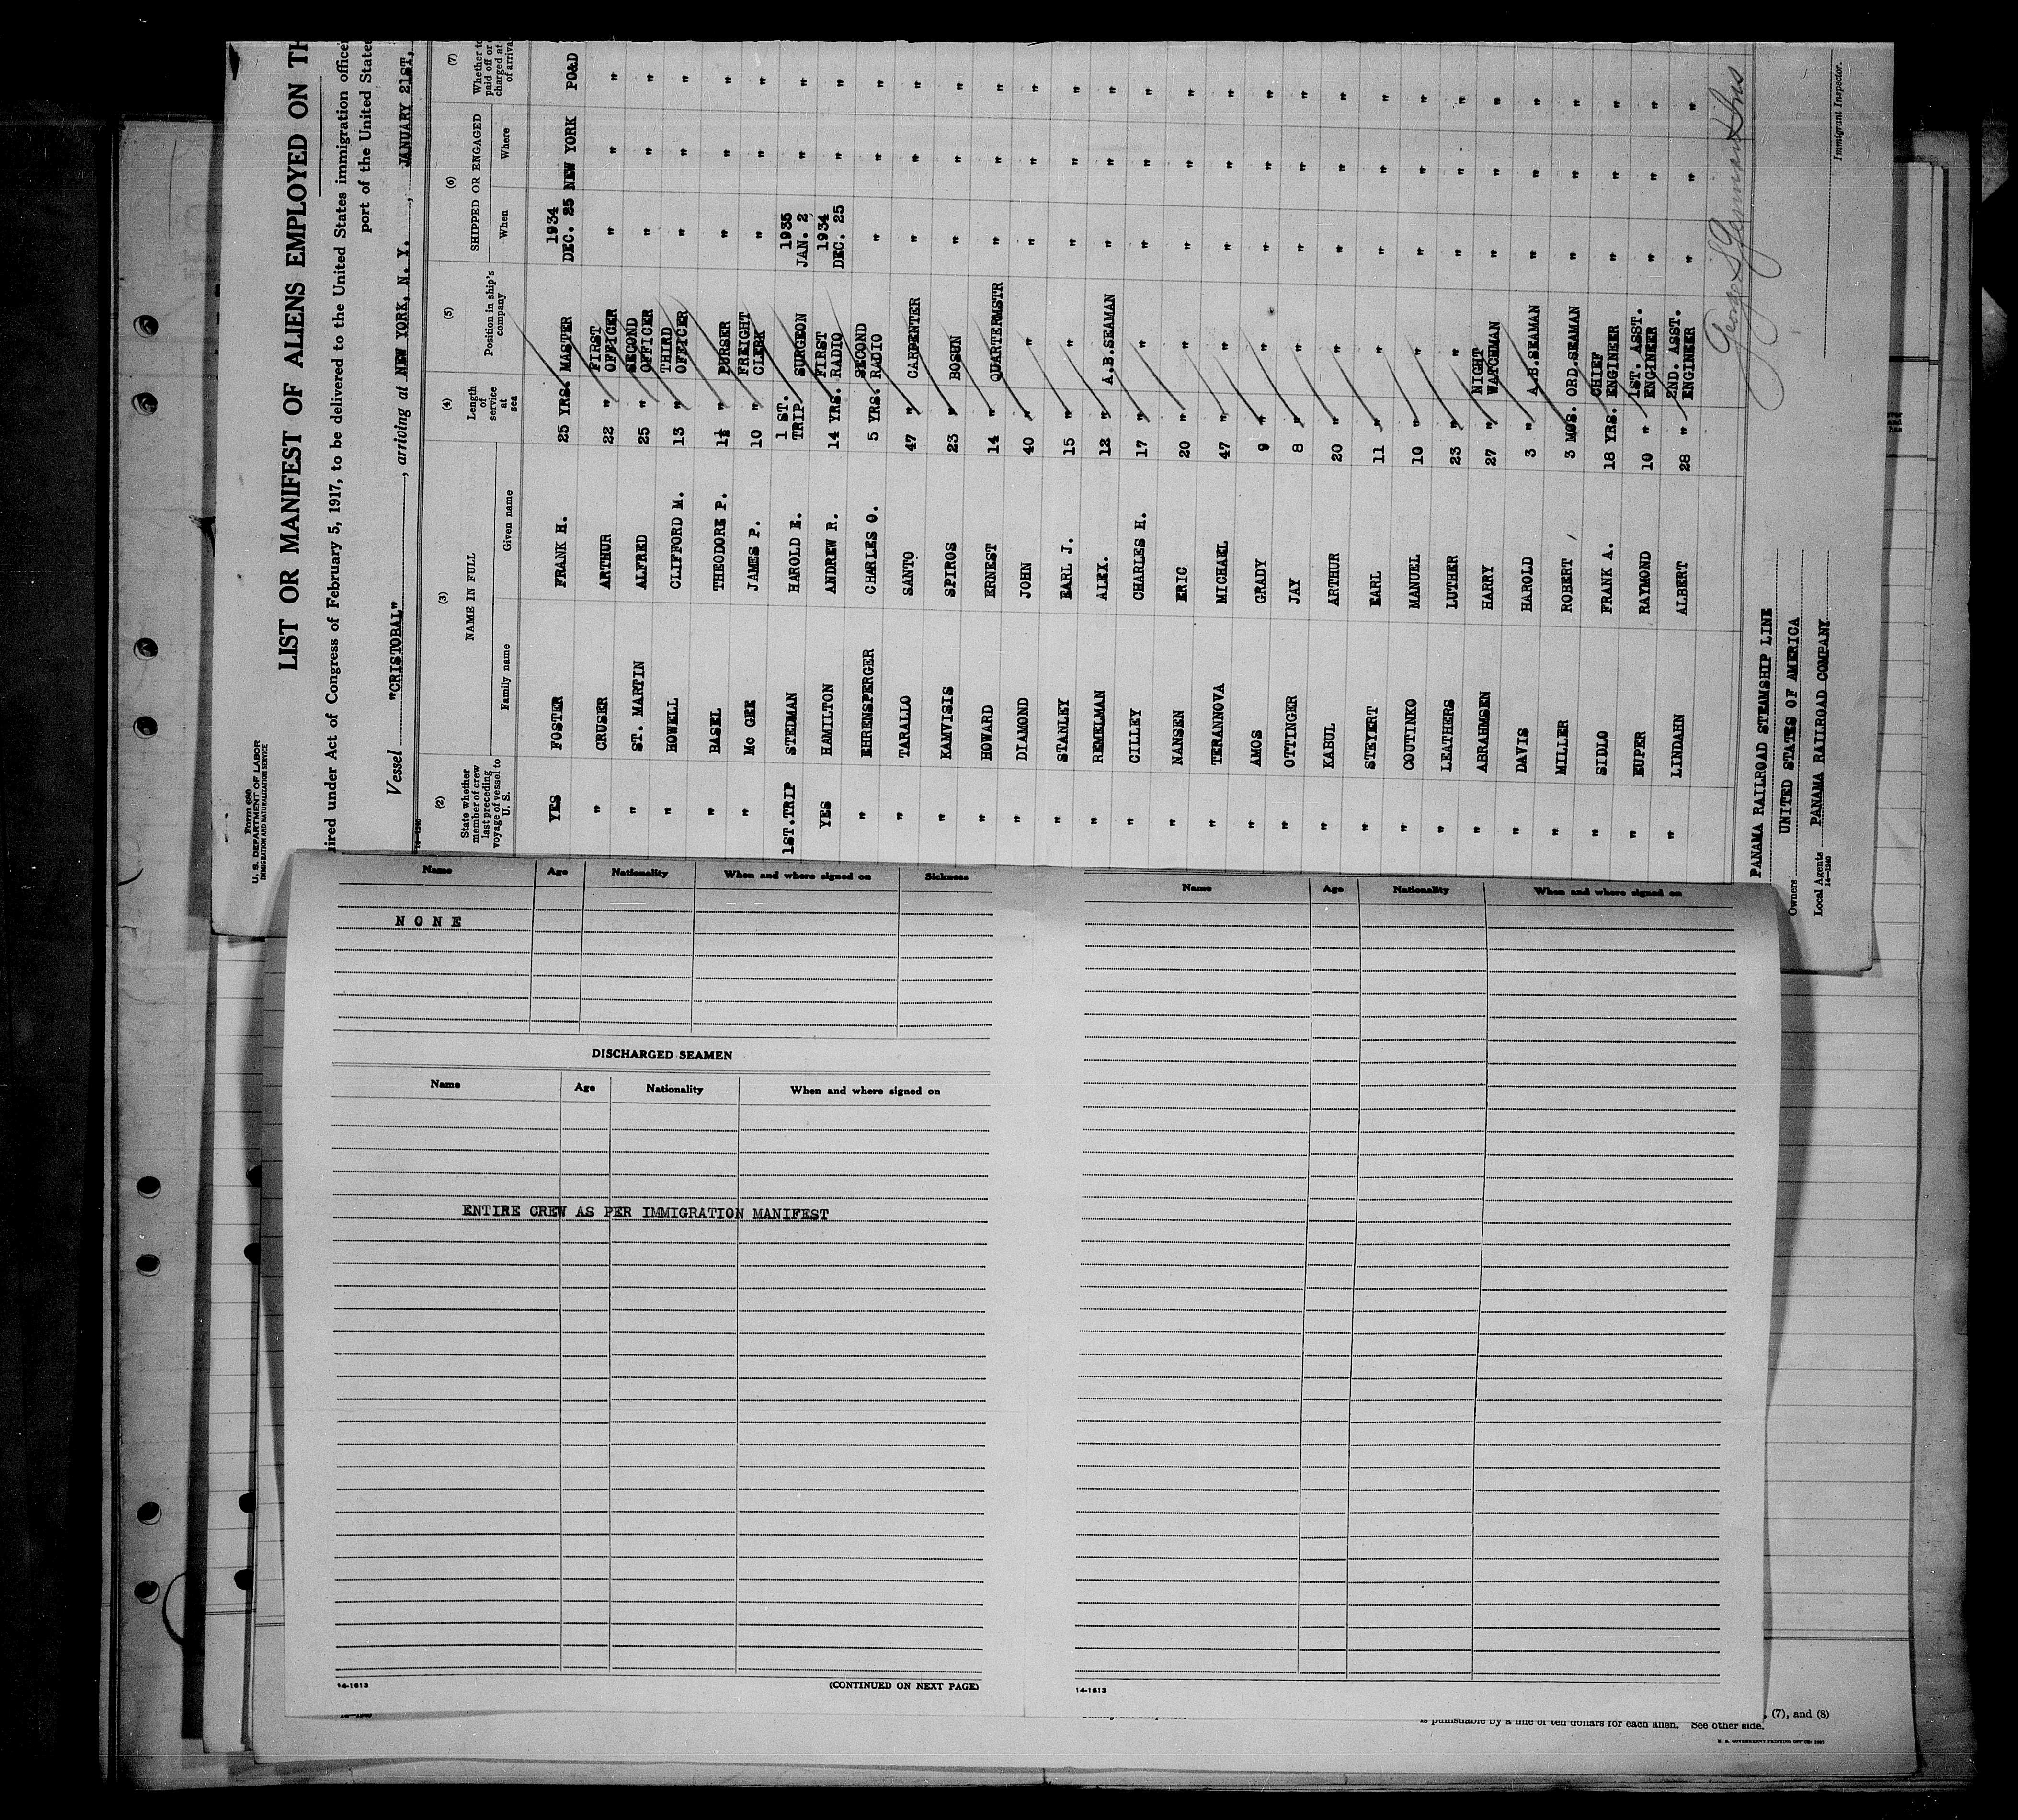 Form 680
U. S. DEPARTMENT OF LABOR
IMMIGRATION AND NATURALIZATION SERVICE
LIST OR MANIFEST OF ALIENS EMPLOYED ON TH
ired under Act of Congress of February 5, 1917, to be delivered to the United States immigration office
port of the United State
Vessel "CRISTOBAL", arriving at NEW YORK, N. Y., JANUARY 21ST,
14—1240
(2) (3) (4) (5) (6) (7)
State whether member of crew last preceding voyage of vessel to U. S. NAME IN FULL Length of service at sea Position in ship's company SHIPPED OR ENGAGED Whether to paid off or charged at of arriva
Family name Given name When Where
YES FOSTER FRANK H. 25 YRS. MASTER 1934 DEC. 25 NEW YORK PO&D
" CRUSER ARTHUR 22 " FIRST OFFICER " " "
" ST. MARTIN ALFRED 25 " SECOND OFFICER " " "
" HOWELL CLIFFORD M. 13 " THIRD OFFICER " " "
" BASEL THEODORE P. 1½ " PURSER " " "
" Mc GEE JAMES P. 10 " FREIGHT CLERK " " "
1ST.TRIP STEDMAN HAROLD E. 1 ST. TRIP SURGEON 1935 JAN. 2 " "
YES HAMILTON ANDREW R. 14 YRS. FIRST RADIO 1934 DEC. 25 " "
" EHRENSPERGER CHARLES O. 5 YRS. SECOND RADIO " " "
" TARALLO SANTO 47 " CARPENTER " " "
" KAMVISIS SPIROS 23 " BOSUN " " "
" HOWARD ERNEST 14 " QUARTERMSTR " " "
" DIAMOND JOHN 40 " " " " "
" STANLEY EARL J. 15 " " " " "
" REMELMAN ALEX. 12 " A.B.SEAMAN " " "
" GILLEY CHARLES H. 17 " " " " "
" NANSEN ERIC 20 " " " " "
" TERANNOVA MICHAEL 47 " " " " "
" AMOS GRADY 9 " " " " "
" OTTINGER JAY 8 " " " " "
" KABUL ARTHUR 20 " " " " "
" STEYERT EARL 11 " " " " "
" COUTINKO MANUEL 10 " " " " "
" LEATHERS LUTHER 23 " " " " "
" ABRAHMSEN HARRY 27 " NIGHT WATCHMAN " " "
" DAVIS HAROLD 3 " A.B.SEAMAN " " "
" MILLER ROBERT 3 MOS. ORD.SEAMAN " " "
" SIDLO FRANK A. 18 YRS. CHIEF ENGINEER " " "
" EUPER RAYMOND 10 " 1ST. ASST. ENGINEER " " "
" LINDAHN ALBERT 28 " 2ND. ASST. ENGINEER " " "
PANAMA RAILROAD STEAMSHIP LINE
Owners UNITED STATES OF AMERICA
Local Agents PANAMA RAILROAD COMPANY
14—1240
Immigrant Inspector.
Name Age Nationality When and where signed on Sickness
NONE
DISCHARGED SEAMEN
Name Age Nationality When and where signed on
ENTIRE CREW AS PER IMMIGRATION MANIFEST
14-1613 (CONTINUED ON NEXT PAGE)
Name Age Nationality When and where signed on
14-1613
, (7), and (8)
is punishable by a fine of ten dollars for each alien. See other side.
U. S. GOVERNMENT PRINTING OFFICE